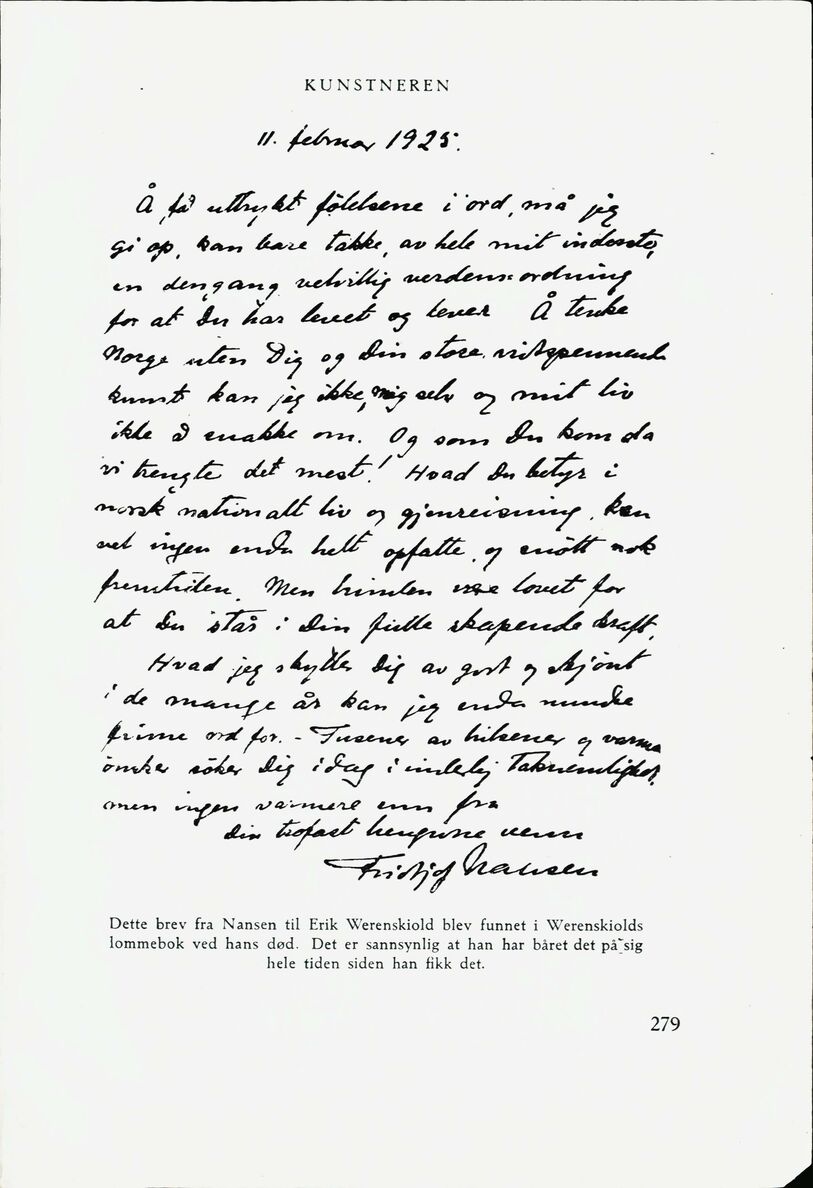 KUNSTNEREN
11. februar 1925.
Å få uttrykt fölelsene i ord, må jeg
gi op, kan bare takke, av hele mit inderste,
en dengang velvillig verdens ordning
for at Du har levet og lever Å tenke
Norge uten Dig og Din store vidtspennende
kunst kan jeg ikke, mig selv og mit liv
ikke å snakke om. Og som Du kom da
vi trengte det mest! Hvad Du betyr i
norsk nationalt liv og gjenreisning, kan
vel ingen enda helt opfatte, og snött nok
fremtiden. Men himlen være lovet for
at Du står i Din fulle skapende kraft.
Hvad jeg skylder Dig av godt og skjönt
i de mange år kan jeg enda mindre
finne ord for. - Tusener av hilsener og varme
önsker söker Dig idag i inderlig taknemlighet,
men ingen varmere enn fra
din trofast hengivne venn
Fridtjof Nansen
Dette brev fra Nansen til Erik Werenskiold blev funnet i Werenskiolds
lommebok ved hans død. Det er sannsynlig at han har båret det på sig
hele tiden siden han fikk det.
279